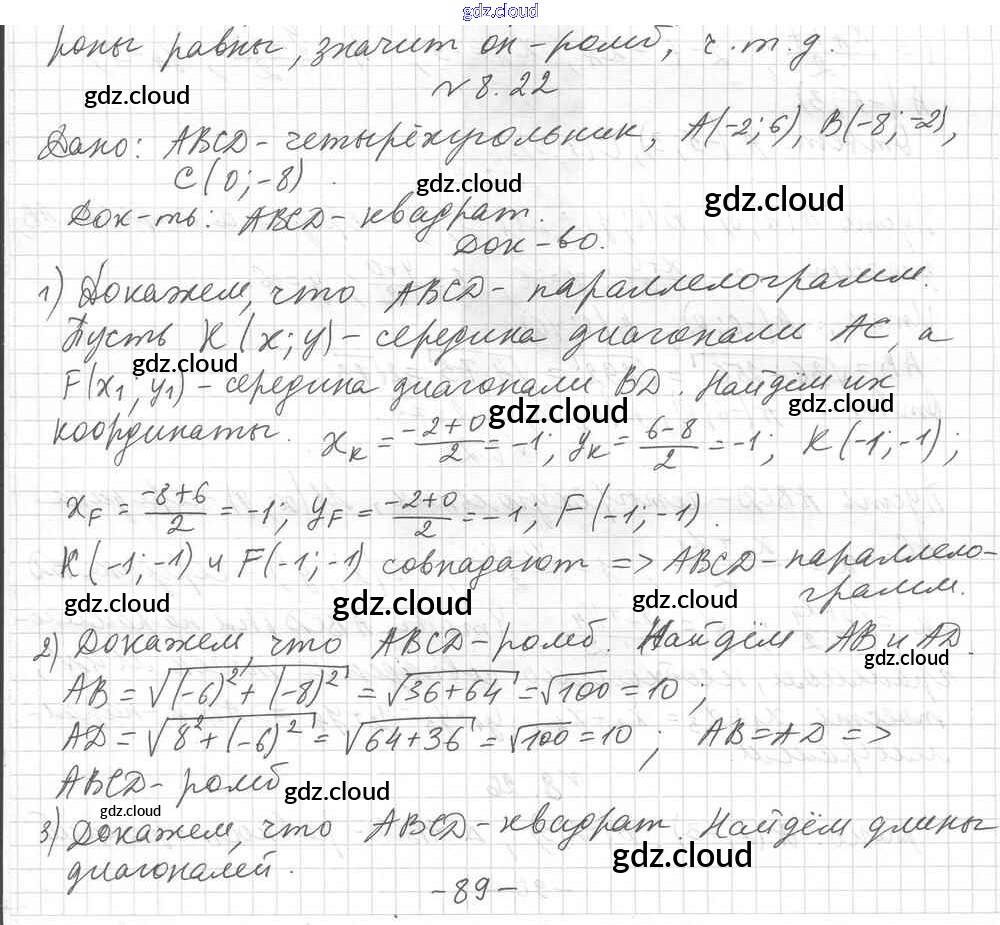 gdz.cloud
роны равны, значит он - ромб, ч.т.д.
gdz.cloud
№ 8.22
Дано: ABCD - четырёхугольник, A(-2; 6), B(-8; -2),
C(0; -8)
gdz.cloud
gdz.cloud
Док-ть: ABCD - квадрат.
Док-во.
1) Докажем, что ABCD - параллелограмм.
Пусть K(x; y) - середина диагонали AC, а
gdz.cloud
F(x₁; y₁) - середина диагонали BD. Найдём их
gdz.cloud
gdz.cloud
координаты. x_K = (-2+0)/2 = -1; y_K = (6-8)/2 = -1; K(-1; -1);
x_F = (-8+6)/2 = -1; y_F = (-2+0)/2 = -1; F(-1; -1).
K(-1; -1) и F(-1; -1) совпадают => ABCD - параллело-
грамм.
gdz.cloud
gdz.cloud
gdz.cloud
2) Докажем, что ABCD - ромб. Найдём AB и AD.
gdz.cloud
AB = √((-6)² + (-8)²) = √(36+64) = √100 = 10;
AD = √(8² + (-6)²) = √(64+36) = √100 = 10; AB = AD =>
ABCD - ромб
gdz.cloud
gdz.cloud
3) Докажем, что ABCD - квадрат. Найдём длины
gdz.cloud
диагоналей.
- 89 -